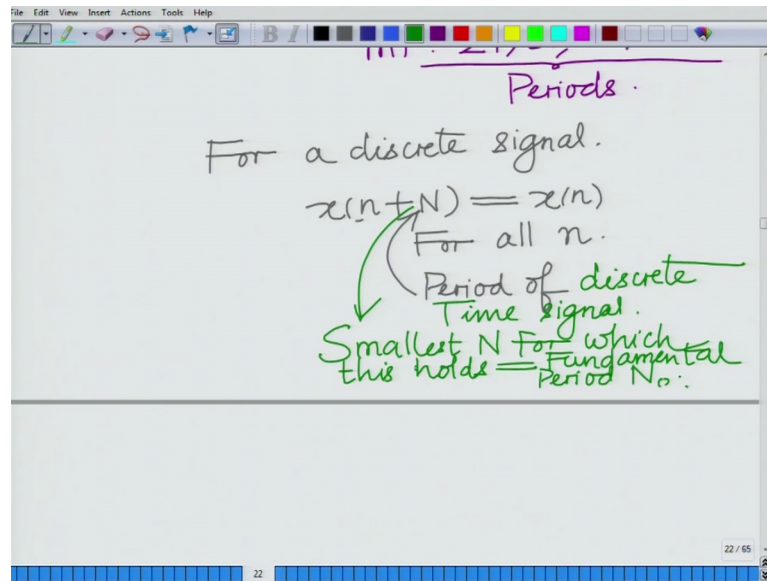 File Edit View Insert Actions Tools Help
B I
Periods.
For a discrete signal.
x(n+N) = x(n)
For all n.
Period of discrete
Time signal.
Smallest N For which
this holds = Fungamental
Period N₀.
22 / 65
22